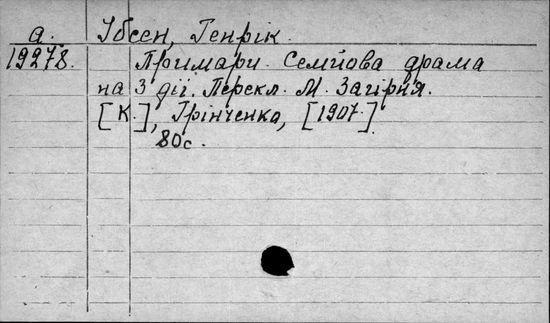 а. Ібсен, Генрік.
19278. Примари. Семйова драма
на 3 дії. Перекл. М. Загірня.
[К.], Грінченка, [1907.]
80с.